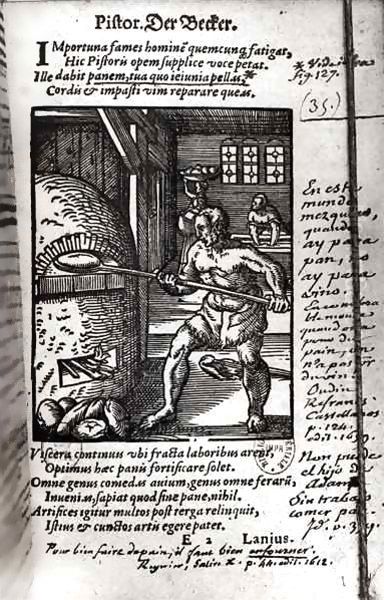 Pistor. Der Becker.
IMportuna fames hominē quemcunq; fatigat,
Hic Pistoris opem supplice voce petat.
Ille dabit panem, tua quo ieiunia pellas,
Cordis & impasti vim reparare queas.
fig. 127.
(35.)
En este
mundo
mezquino,
quando
ay para
pan, no
ay para
vino.
Oudin
Refranes
Castellanos
p. 124.
edit. 1659.
Non puede
el hijo de
Adam
sin trabajo
comer pan.
Viscera continuis vbi fracta laboribus arent,
Optimus hæc panis fortificare solet.
Omne genus comedas auium, genus omne ferarū,
Inuenias, sapiat quod sine pane, nihil.
Artifices igitur multos post terga relinquit,
Istius & cunctos artis egere patet.
E 2 Lanius.
Pour bien faire du pain, il faut bien enfourner.
Regnier, Satire X. p. 44. edit. 1612.